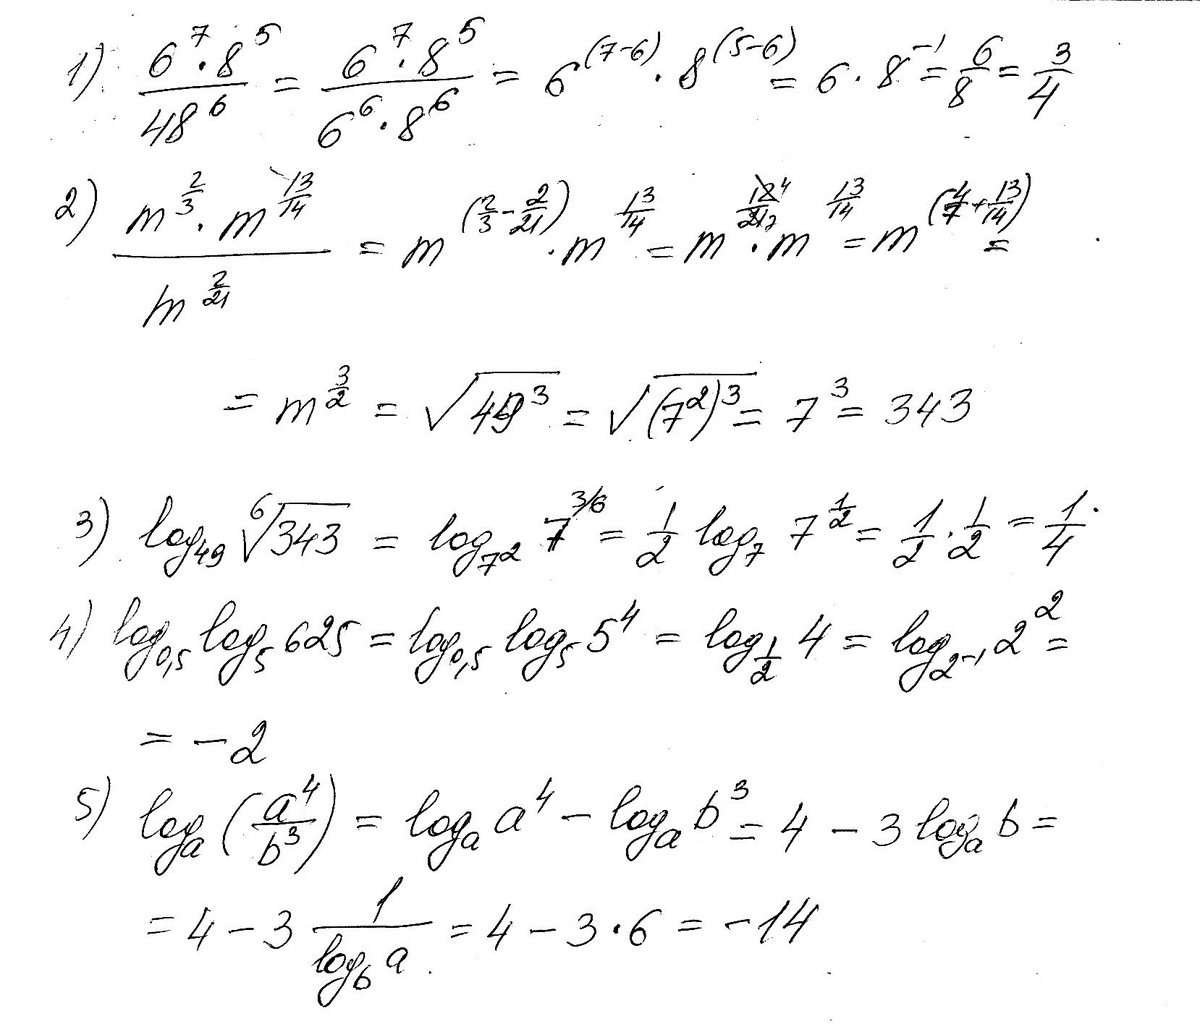 1) 6^7·8^5/48^6 = 6^7·8^5/6^6·8^6 = 6^(7-6)·8^(5-6) = 6·8^-1 = 6/8 = 3/4
2) m^2/3·m^13/14/m^2/21 = m^(2/3-2/21)·m^13/14 = m^12/21·m^13/14 = m^(4/7+13/14) =
= m^3/2 = √49^3 = √(7^2)^3 = 7^3 = 343
3) log_49 ⁶√343 = log_7^2 7^3/6 = 1/2 log_7 7^1/2 = 1/2·1/2 = 1/4.
4) log_0,5 log_5 625 = log_0,5 log_5 5^4 = log_1/2 4 = log_2^-1 2^2 =
= -2
5) log_a (a^4/b^3) = log_a a^4 - log_a b^3 = 4 - 3 log_a b =
= 4 - 3 1/log_b a = 4 - 3·6 = -14